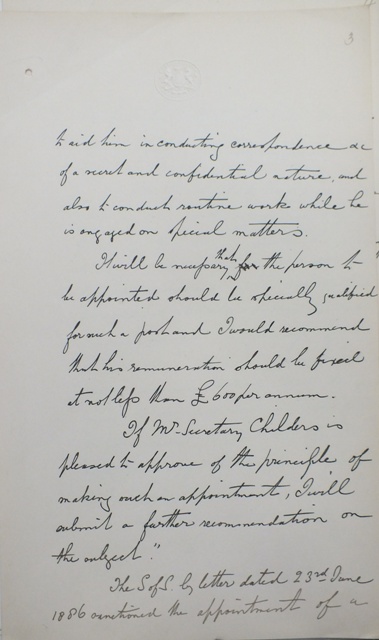 3
to aid him in conducting correspondence &c
of a secret and confidential nature, and
also to conduct routine works while he
is engaged on special matters.
It will be necessary that for the person to
be appointed should be specially qualified
for such a post and I would recommend
that his remuneration should be fixed
at not less than £600 per annum.
If Mr. Secretary Childers is
pleased to approve of the principle of
making such an appointment, I will
submit a further recommendation on
the subject."
The S of S. by letter dated 23rd June
1886 sanctioned the appointment of a